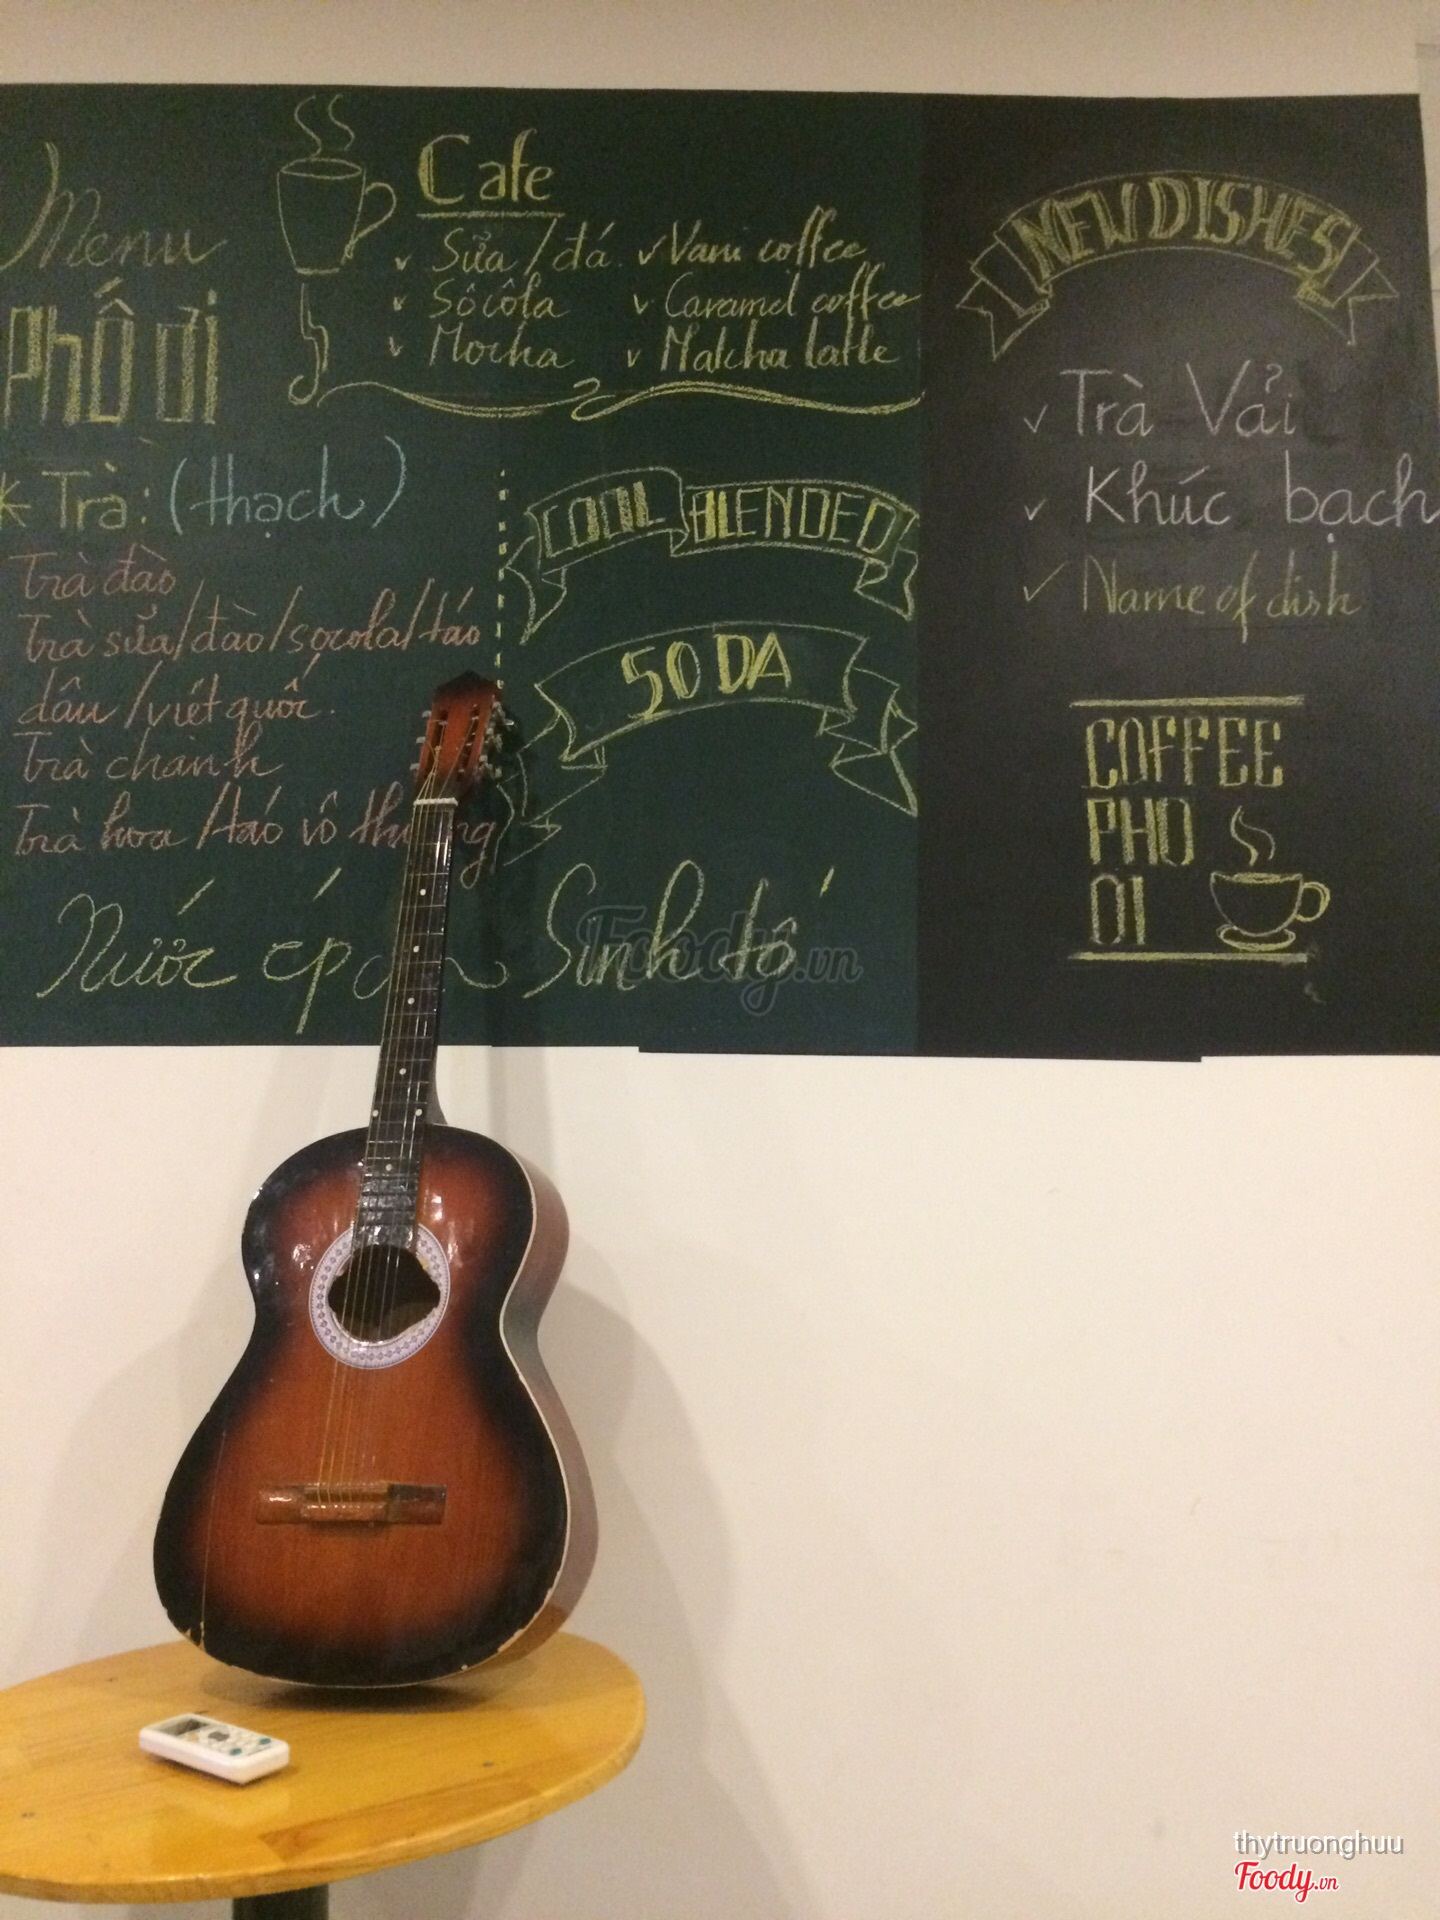 Menu
Phố ơi
Cafe
Sữa / đá
Sôcôla
Mocha
Vani coffee
Caramel coffee
Matcha latte
Trà: (thạch)
Trà đào
Trà sữa/đào/socola/táo
dâu/việt quốc.
Trà chanh
Trà hoa/táo
COOL BLENDED
SODA
Nước ép
Sinh tố
NEW DISHES
Trà Vải
Khúc bạch
Name of dish
COFFEE
PHO
OI
Foody.vn
thytruonghuu
Foody.vn